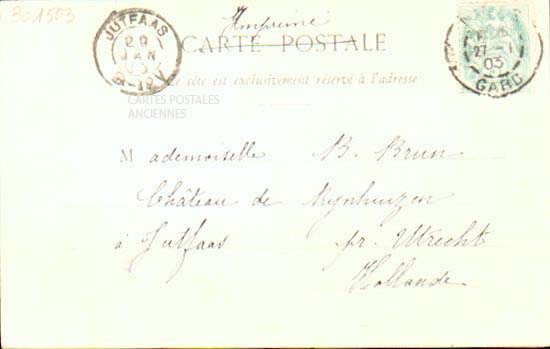 301503
Imprimé
CARTE POSTALE
Ce côté est exclusivement réservé à l'adresse
JUTFAAS
29
JAN
03
27 -1
03
GARD
CARTES POSTALES
ANCIENNES
Mademoiselle B. Brun
Château de Rijnhuizen
à Jutfaas pr. Utrecht
Hollande